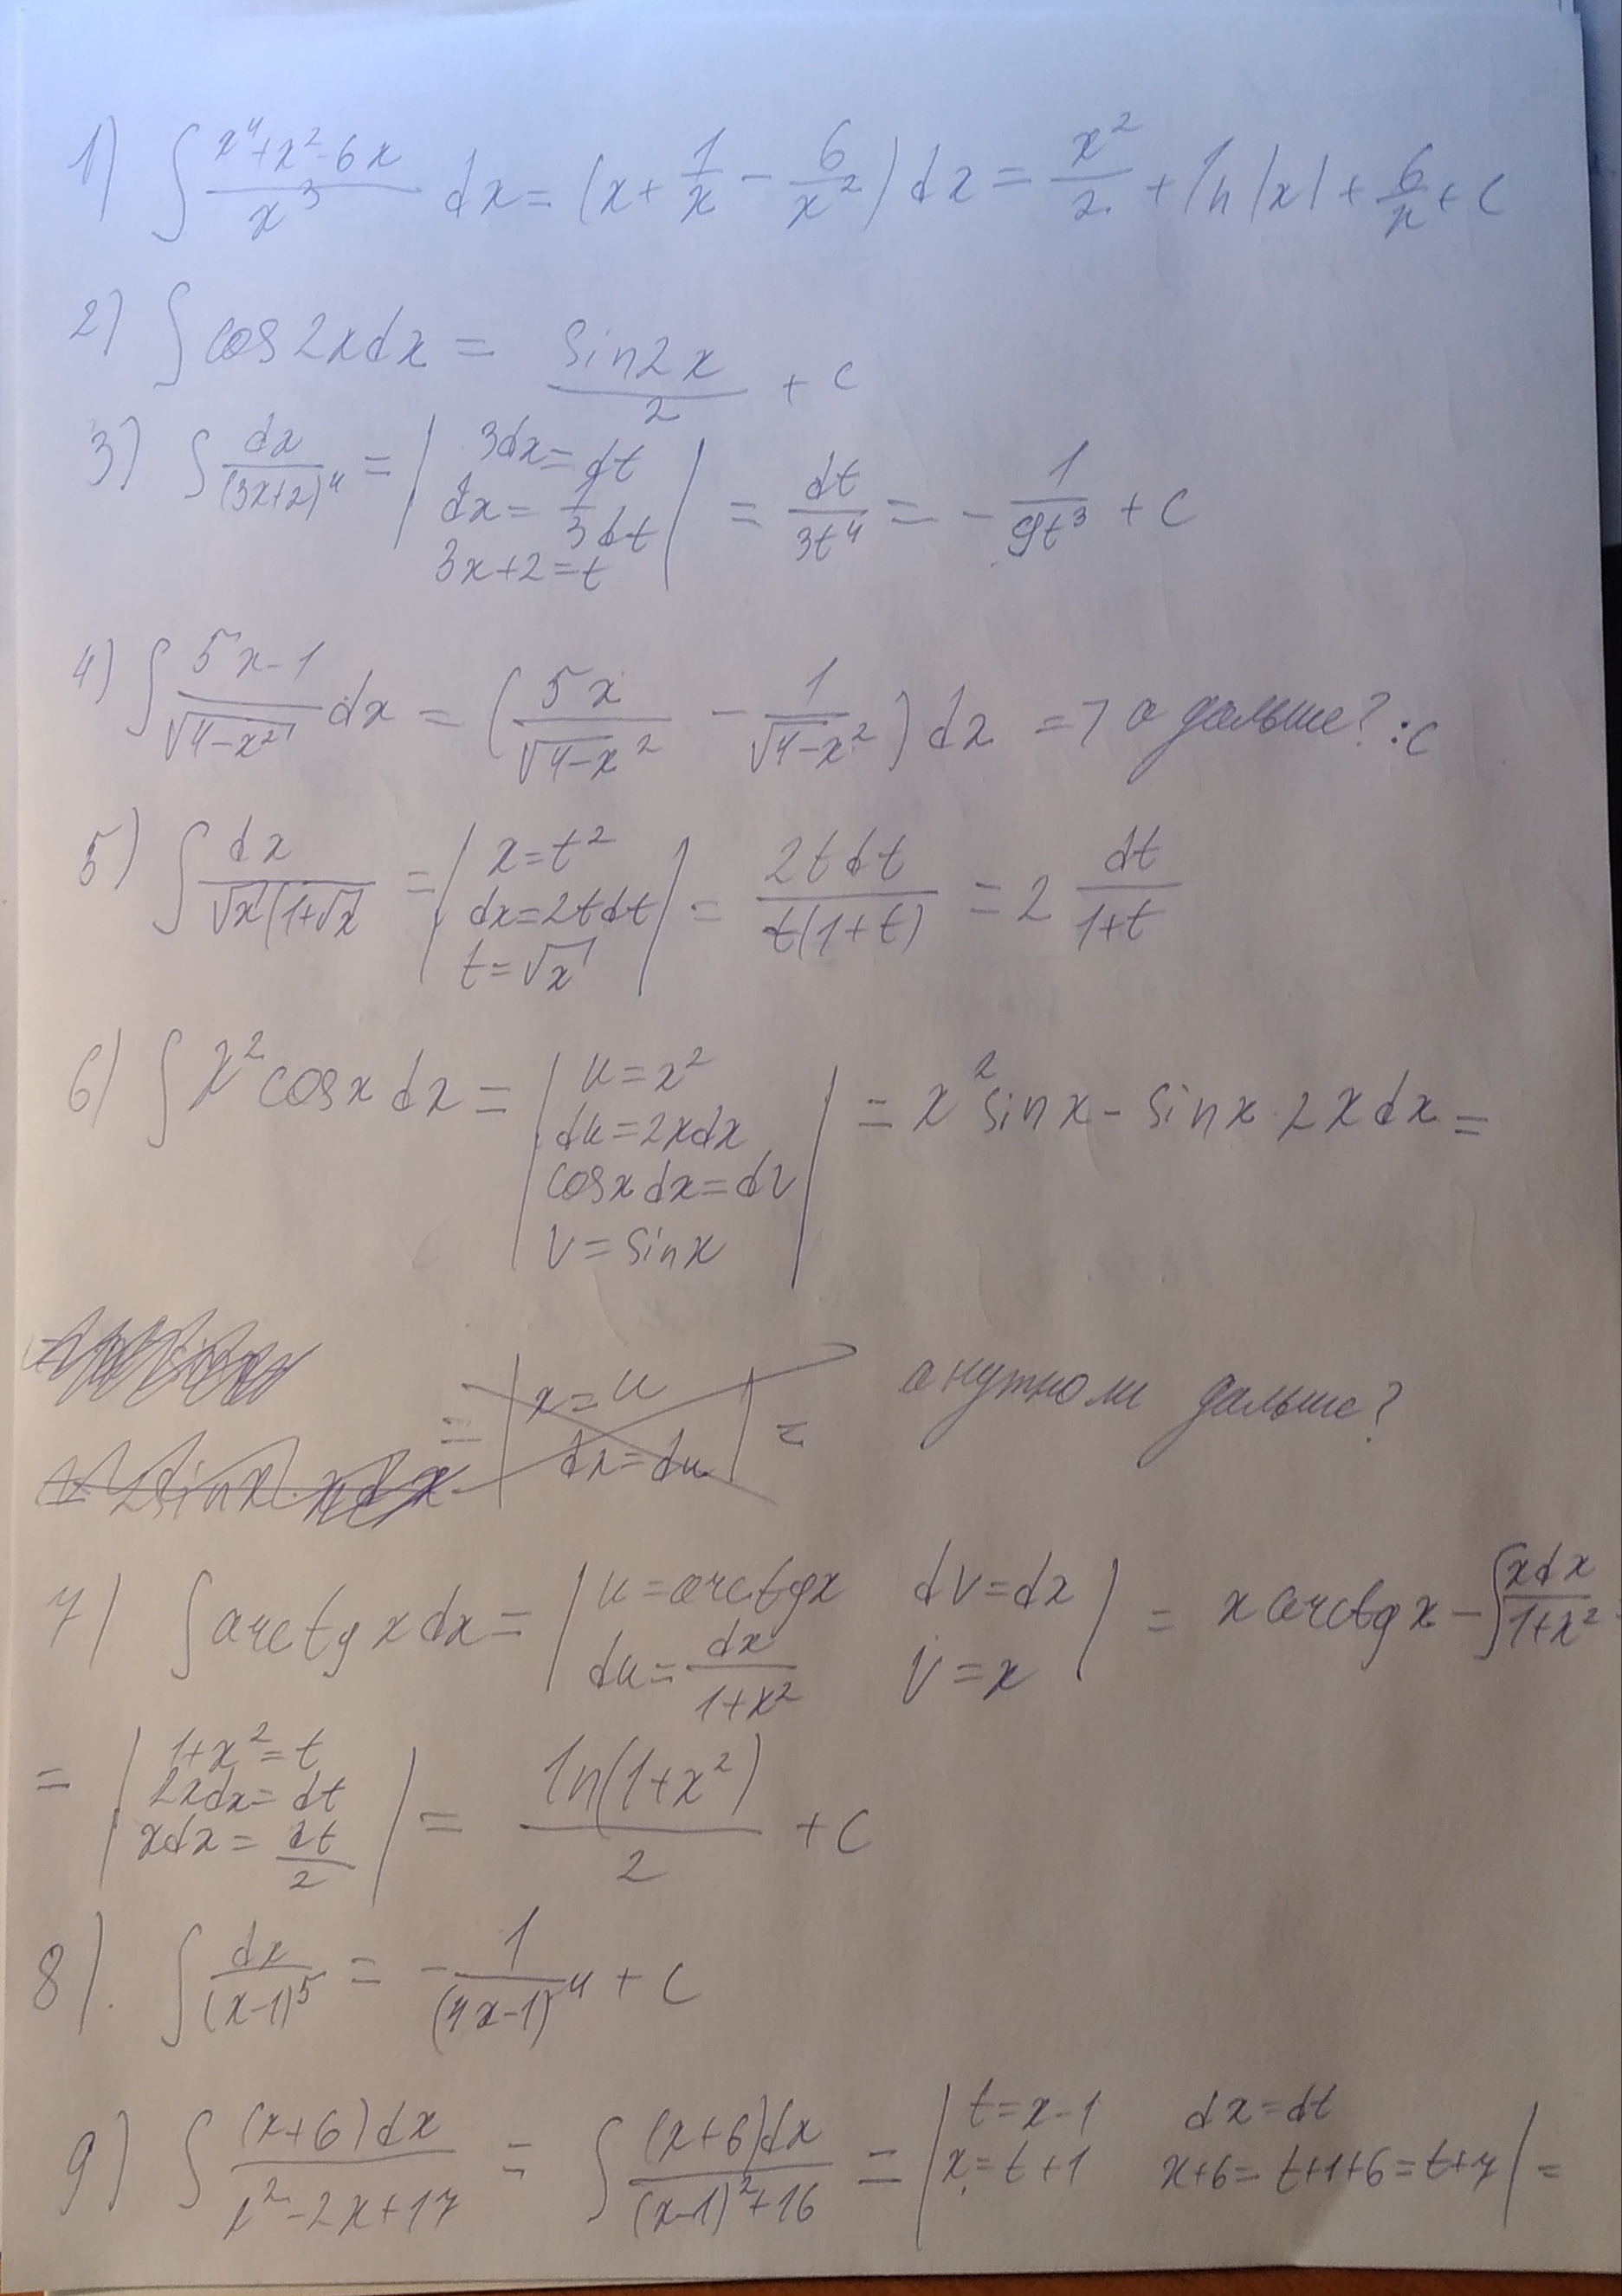 1) ∫ (x⁴+x²-6x)/x³ dx = (x + 1/x - 6/x²) dx = x²/2 + ln|x| + 6/x + c
2) ∫ cos2xdx = sin2x/2 + c
3) ∫ dx/(3x+2)⁴ = | 3dx=dt
dx = 1/3 dt
3x+2=t | = dt/3t⁴ = - 1/9t³ + c
4) ∫ (5x-1)/√(4-x²) dx = (5x/√4-x² - 1/√4-x²) dx = ? а дальше? :c
5) ∫ dx/(√x(1+√x = | x=t²
dx=2tdt
t=√x | = 2tdt/t(1+t) = 2 dt/1+t
6) ∫ x²cosxdx = | u=x²
du=2xdx
cosxdx=dv
v=sinx | = x²sinx - sinx·2xdx =
= | x=u
dx=du | = а нужно ли дальше?
7) ∫ arctgxdx = | u=arctgx dv=dx
du=dx/1+x² v=x | = xarctgx - ∫ xdx/1+x²
= | 1+x²=t
2xdx=dt
xdx=dt/2 | = ln(1+x²)/2 + c
8). ∫ dx/(x-1)⁵ = - 1/(4x-1)⁴ + c
9) ∫ (x+6)dx/x²-2x+17 = ∫ (x+6)dx/(x-1)²+16 = | t=x-1 dx=dt
x=t+1 x+6=t+1+6=t+7 | =